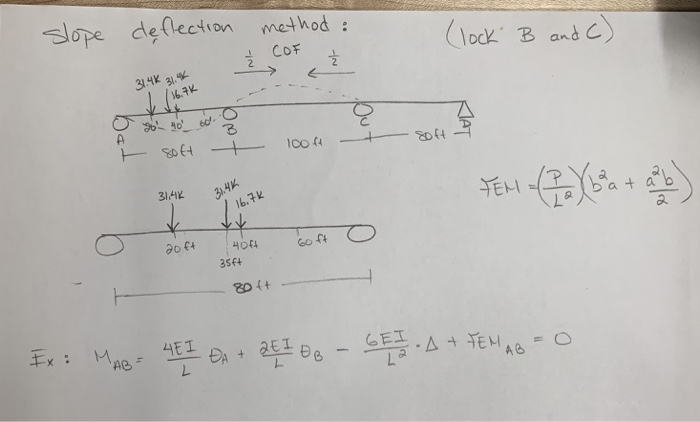 Slope deflection method: (lock B and C)
1/2 COF 1/2
31.4K 31.4K
16.7K
20' 40' 60'
A B C D
80ft 100 ft 80ft
FEM = (P/L²)(b²a + a²b/2)
31.4K 31.4K
16.7K
20 ft 40ft 60 ft
35ft
80 ft
Ex: M_AB = 4EI/L θ_A + 2EI/L θ_B - 6EI/L² · Δ + FEM_AB = 0